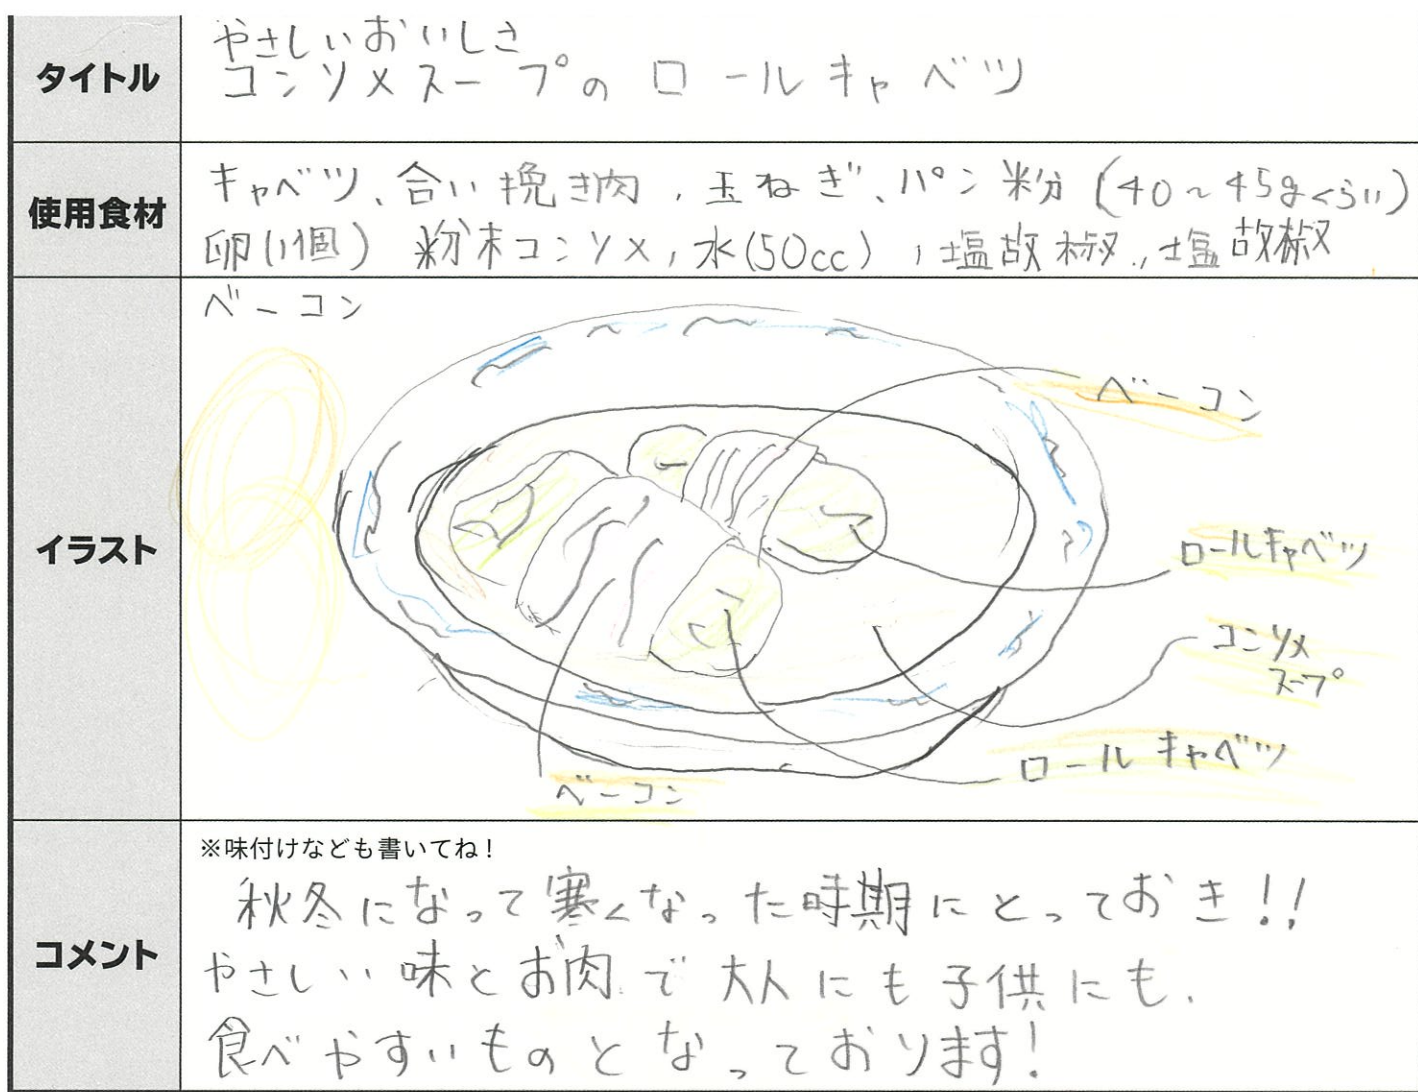 タイトル
やさしいおいしさ
コンソメスープのロールキャベツ
使用食材
キャベツ、合い挽き肉、玉ねぎ、パン粉(40~45gくらい)
卵(1個) 粉末コンソメ、水(50cc)、塩故椒、塩故椒
ベーコン
イラスト
ベーコン
ロールキャベツ
コンソメ
スープ
ロールキャベツ
ベーコン
コメント
※味付けなども書いてね!
秋冬になって寒くなった時期にとっておき!!
やさしい味とお肉で大人にも子供にも、
食べやすいものとなっております!